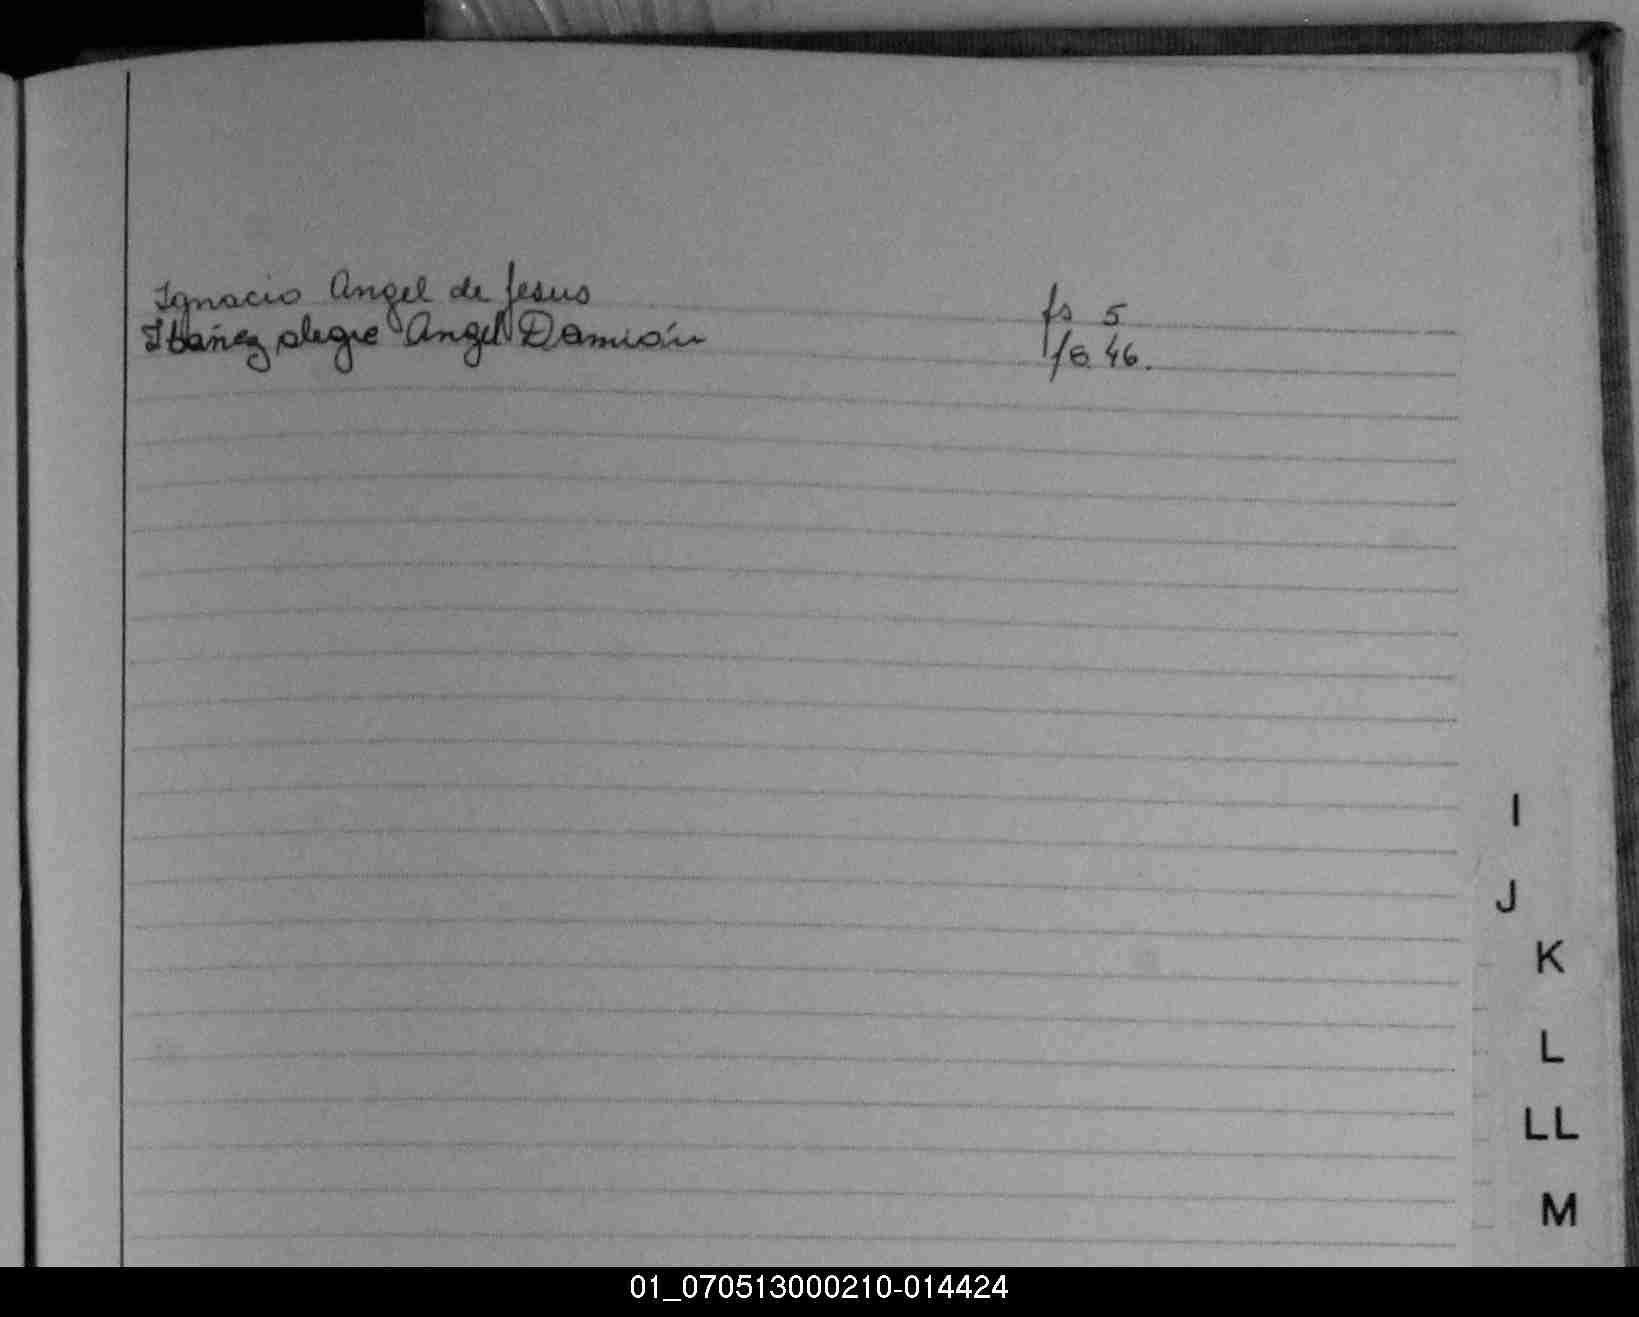 Ignacio Angel de Jesus fs 5
Ibáñez alegre Angel Damián fs 46.
I
J
K
L
LL
M
01_070513000210-014424